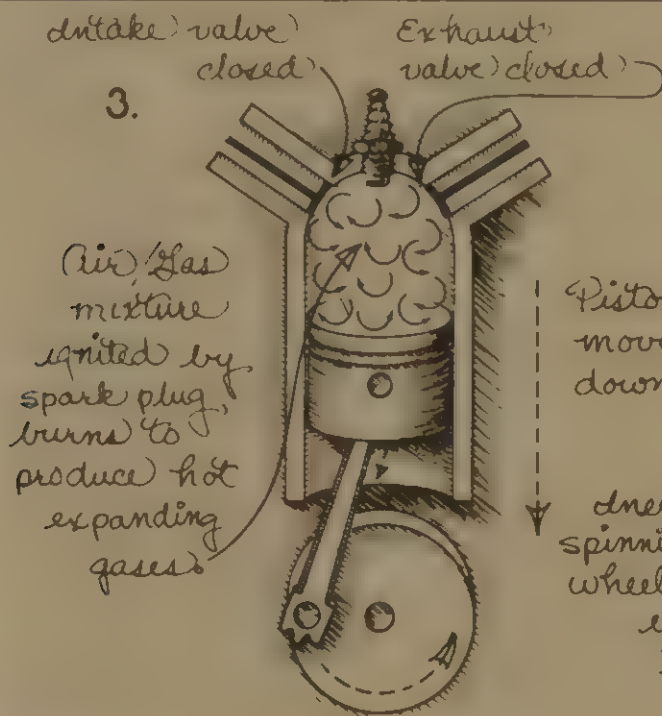 Intake valve
closed
Exhaust
valve closed
3.
Air/Gas
mixture
ignited by
spark plug,
burns to
produce hot
expanding
gases.
Pisto
mov
down
Iner
spinni
wheel